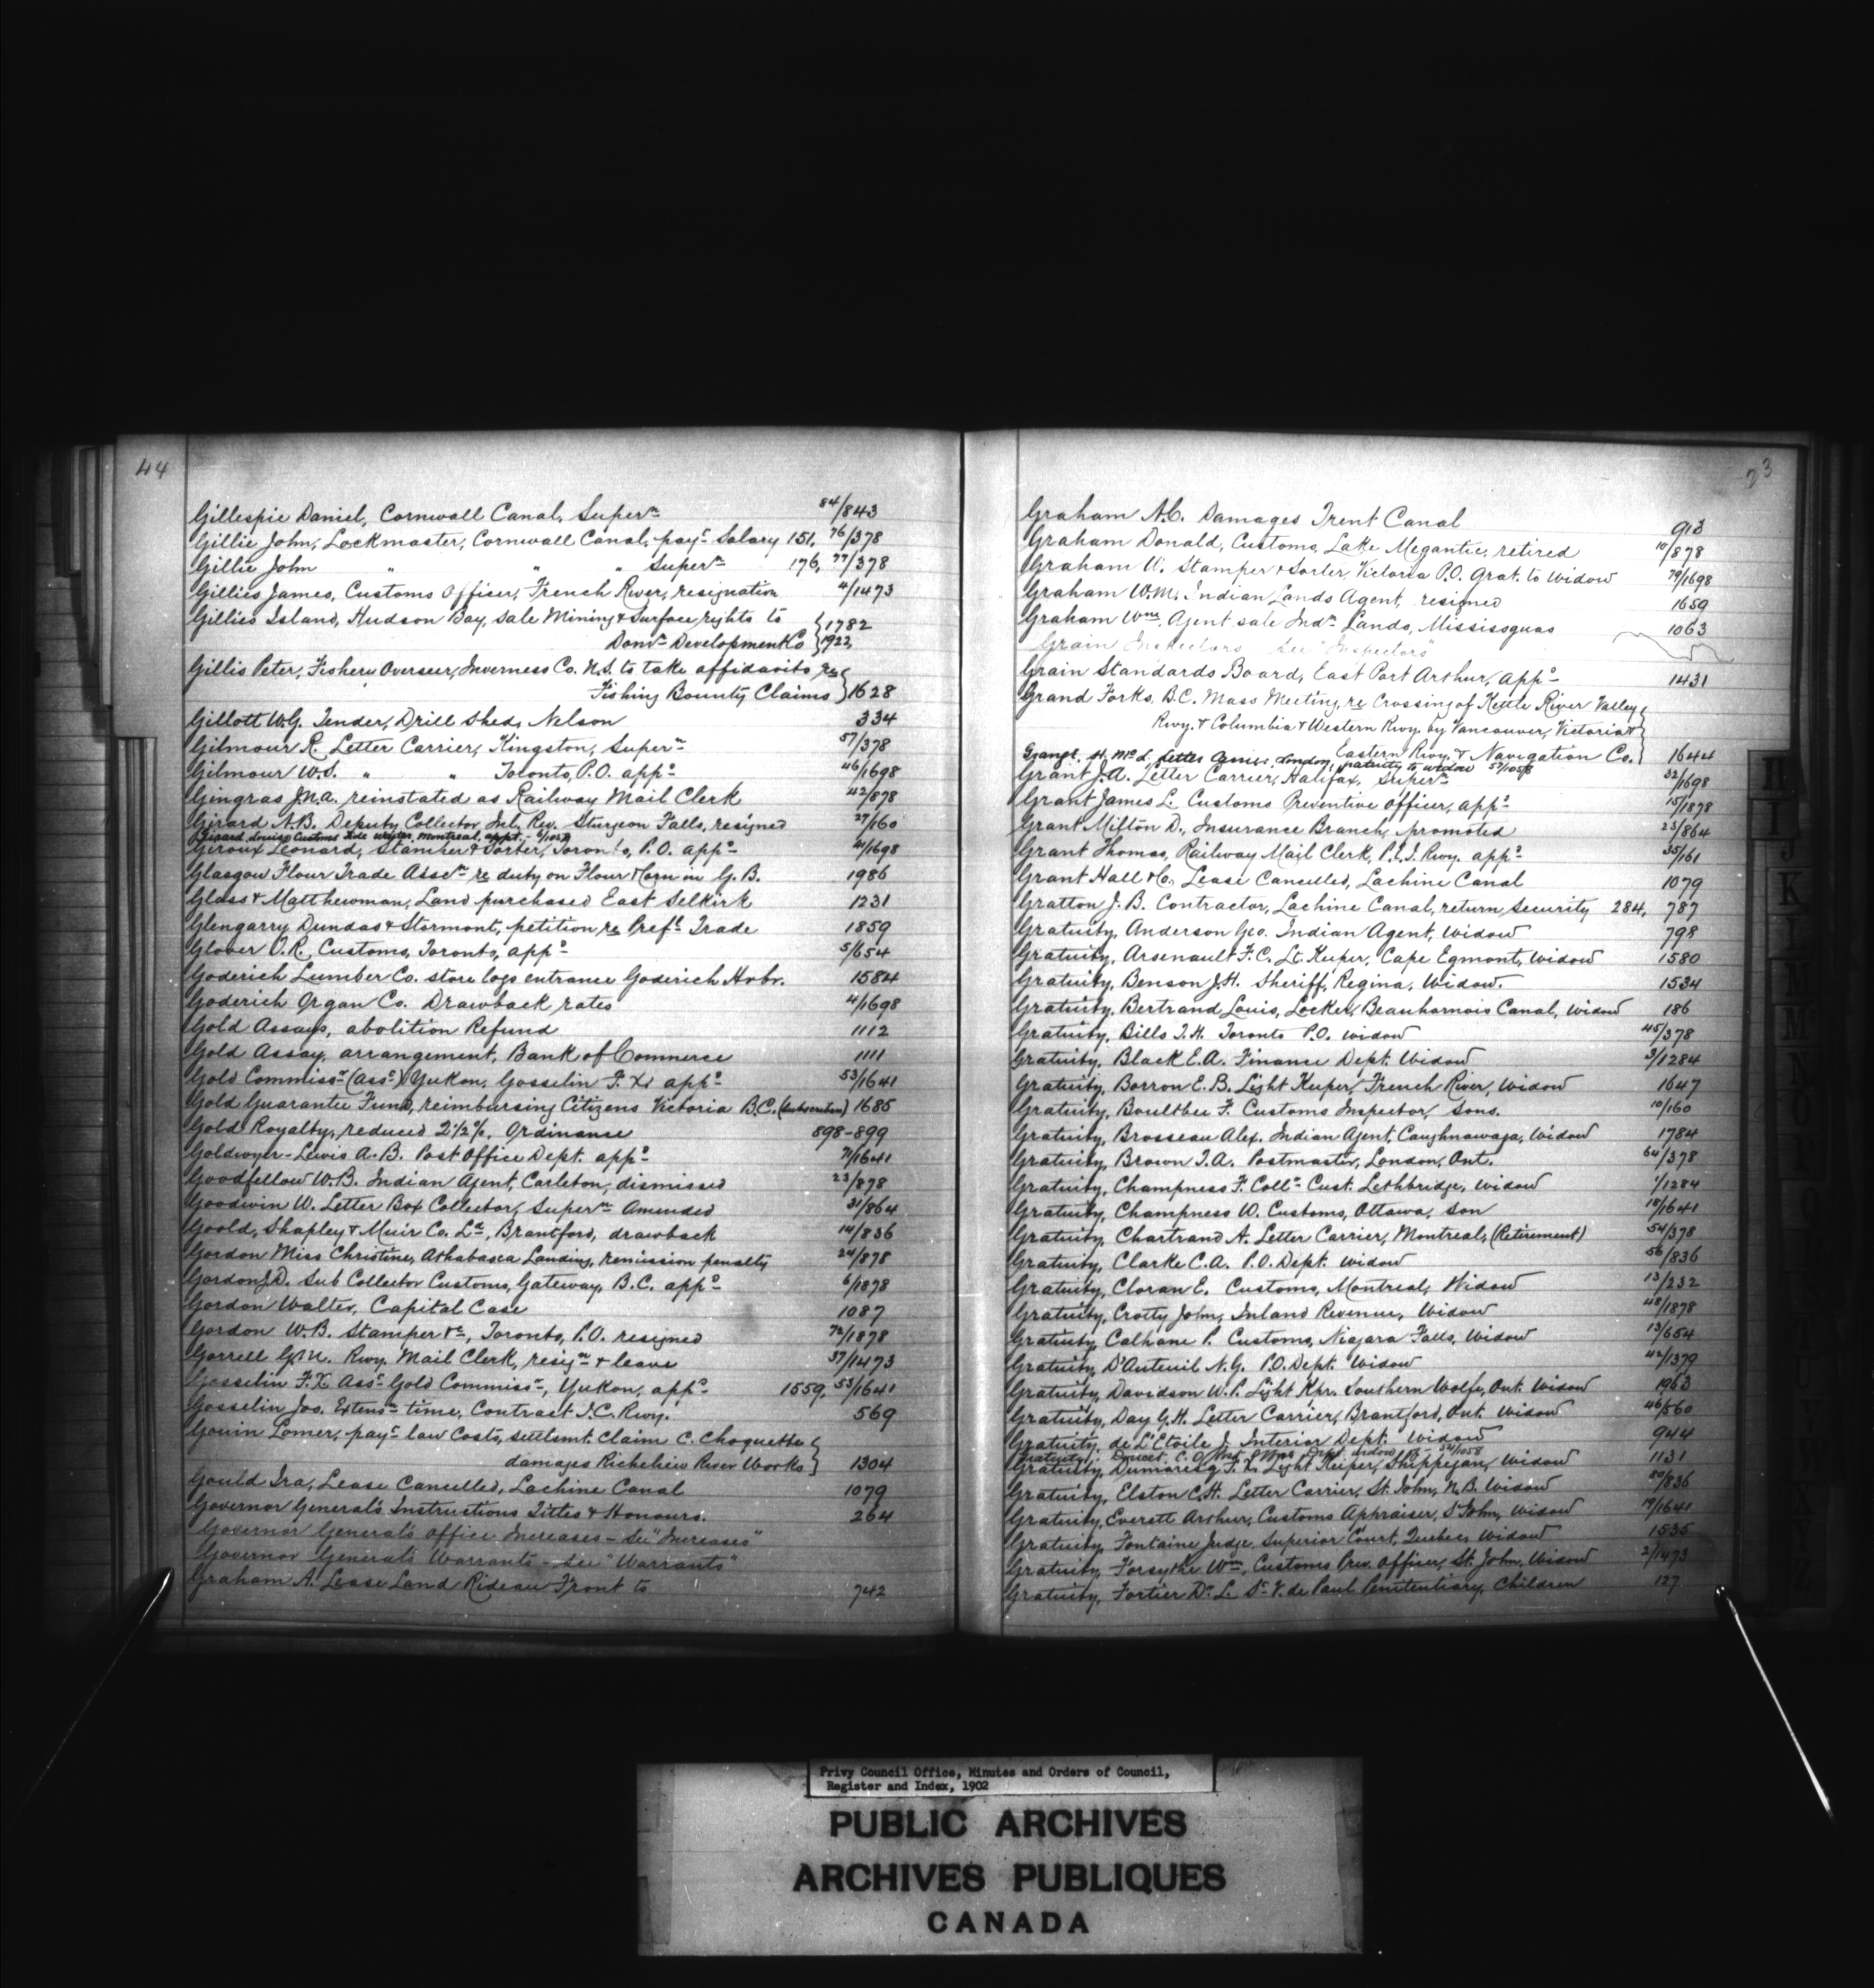 44
Gillespie Daniel, Cornwall Canal, Supern 84/843
Gillie John, Lockmaster, Cornwall Canal, payt Salary 151, 76/378
Gillie John " " " Supern 176, 77/378
Gillies James, Customs Officer, French River, resignation 4/1473
Gillies Island, Hudson Bay, sale Mining & Surface rights to { 1782
Domn Development Co { 1922
Gillis Peter, Fishery Overseer, Inverness Co. N.S. to take affidavits re
Fishing Bounty Claims } 1628
Gillott W.G. Tender, Drill Shed, Nelson 334
Gilmour R. Letter Carrier, Kingston, Supern 57/378
Gilmour W.S. " " Toronto, P.O. appt 46/1698
Gingras J.N.A. reinstated as Railway Mail Clerk 42/878
Girard A.B. Deputy Collector Inl. Rev. Sturgeon Falls, resigned 27/160
Girard Louis, Customs Tide Waiter, Montreal, appt.
Giroux Leonard, Stamper & Sorter, Toronto, P.O. appt 41/1698
Glasgow Flour Trade Assocn re duty on Flour & Corn in G.B. 1986
Glass & Matthewman, Land purchased East Selkirk 1231
Glengarry Dundas & Stormont, petition re Preft Trade 1859
Glover T.R. Customs, Toronto, appt 5/654
Goderich Lumber Co. store logs entrance Goderich Hrbr. 1584
Goderich Organ Co. Drawback rates 4/1698
Gold Assays, abolition Refund 1112
Gold Assay, arrangement, Bank of Commerce 1111
Gold Commissr (Asst) Yukon, Gosselin F.X. appt 53/1641
Gold Guarantee Fund, reimbursing Citizens Victoria B.C. (Subscribers) 1685
Gold Royalty, reduced 2 1/2 %, Ordinance 898-899
Goldwyer-Lewis A.B. Post Office Dept. appt 71/1641
Goodfellow W.B. Indian Agent, Carleton, dismissed 23/878
Goodwin W. Letter Box Collector, Supern Amended 31/864
Goold, Shapley & Muir Co. Ld, Brantford, drawback 14/836
Gordon Miss Christine, Athabasca Landing, remission penalty 24/878
Gordon J.D. Sub Collector Customs, Gateway, B.C. appt 6/1878
Gordon Walter, Capital Case 1087
Gordon W.B. Stamper &c, Toronto, P.O. resigned 72/1878
Gorrell G.M. Rwy. Mail Clerk, resign & leave 37/1473
Gosselin F.X. Asst Gold Commissr, Yukon, appt 1559, 53/1641
Gosselin Jos. Extensn time, Contract I.C. Rwy. 569
Gouin Lomer, payt law Costs, settlemt. Claim C. Choquette
damages Richelieu River Works } 1304
Gould Ira, Lease Cancelled, Lachine Canal 1079
Governor General's Instructions Titles & Honours. 264
Governor General's Office Increases - See "Increases"
Governor General's Warrants - See "Warrants"
Graham A. Lease Land Rideau Front to 742
Graham A.C. Damages Trent Canal 913
Graham Donald, Customs, Lake Megantic, retired 10/878
Graham W. Stamper & Sorter, Victoria P.O. Grat. to Widow 79/1698
Graham W.M. Indian Lands Agent, resigned 1659
Graham Wm. Agent sale Indn Lands, Mississaguas 1063
Grain Inspectors See "Inspectors"
Grain Standards Board, East Port Arthur, appt 1431
Grand Forks, B.C. Mass Meeting, re Crossing of Kettle River Valley
Rwy. & Columbia & Western Rwy. by Vancouver, Victoria &
Eastern Rwy. & Navigation Co. } 1644
Letter Carrier, London, gratuity to widow 53/1058
Grant J.A. Letter Carrier, Halifax, Supern 32/1698
Grant James L. Customs Preventive Officer, appt 15/1878
Grant Milton D., Insurance Branch, promoted 23/864
Grant Thomas, Railway Mail Clerk, P.E.I. Rwy. appt 35/161
Grant Hall & Co., Lease Cancelled, Lachine Canal 1079
Gratton J.B. Contractor, Lachine Canal, return Security 284, 787
Gratuity, Anderson Geo. Indian Agent, Widow 798
Gratuity, Arsenault F.C. Lt. Keeper, Cape Egmont, Widow 1580
Gratuity, Benson J.H. Sheriff, Regina, Widow. 1534
Gratuity, Bertrand Louis, Locker, Beauharnois Canal, Widow 186
Gratuity, Bills T.H. Toronto P.O. Widow 45/378
Gratuity, Black E.A. Finance Dept. Widow 3/1284
Gratuity, Borron E.B. Light Keeper, French River, Widow 1647
Gratuity, Boultbee F. Customs Inspector, Sons. 10/160
Gratuity, Brosseau Alex. Indian Agent, Caughnawaga, Widow 1784
Gratuity, Brown T.A. Postmaster, London, Ont. 64/378
Gratuity, Champness F. Collr Cust. Lethbridge, Widow 1/1284
Gratuity, Champness W. Customs, Ottawa, Son 18/1641
Gratuity, Chartrand A. Letter Carrier, Montreal, (Retirement) 54/378
Gratuity, Clarke C.A. P.O. Dept. Widow 56/836
Gratuity, Cloran E. Customs, Montreal, Widow 13/232
Gratuity, Crotty John, Inland Revenue, Widow 48/1878
Gratuity, Calhane P. Customs, Niagara Falls, Widow 13/654
Gratuity, D'Auteuil N.G. P.O. Dept. Widow 42/1379
Gratuity, Davidson W.P. Light Kpr. Southern Wolfe, Ont. Widow 1963
Gratuity, Day G.H. Letter Carrier, Brantford, Ont. Widow 46/560
Gratuity, de L'Etoile J. Interior Dept. Widow 944
Gratuity, Doucet 54/1058
Gratuity, Dumaresq F.L. Light Keeper, Shippegan, Widow 1131
Gratuity, Elston C.H. Letter Carrier, St. John, N.B. Widow 80/836
Gratuity, Everett Arthur, Customs Appraiser, St John, Widow 19/1641
Gratuity, Fontaine Judge, Superior Court, Quebec, Widow 1535
Gratuity, Forsythe Wm, Customs Prev. Officer, St. John, Widow 2/1473
Gratuity, Fortier Dr. L. St. V. de Paul Penitentiary, Children 127
Privy Council Office, Minutes and Orders of Council,
Register and Index, 1902
PUBLIC ARCHIVES
ARCHIVES PUBLIQUES
CANADA